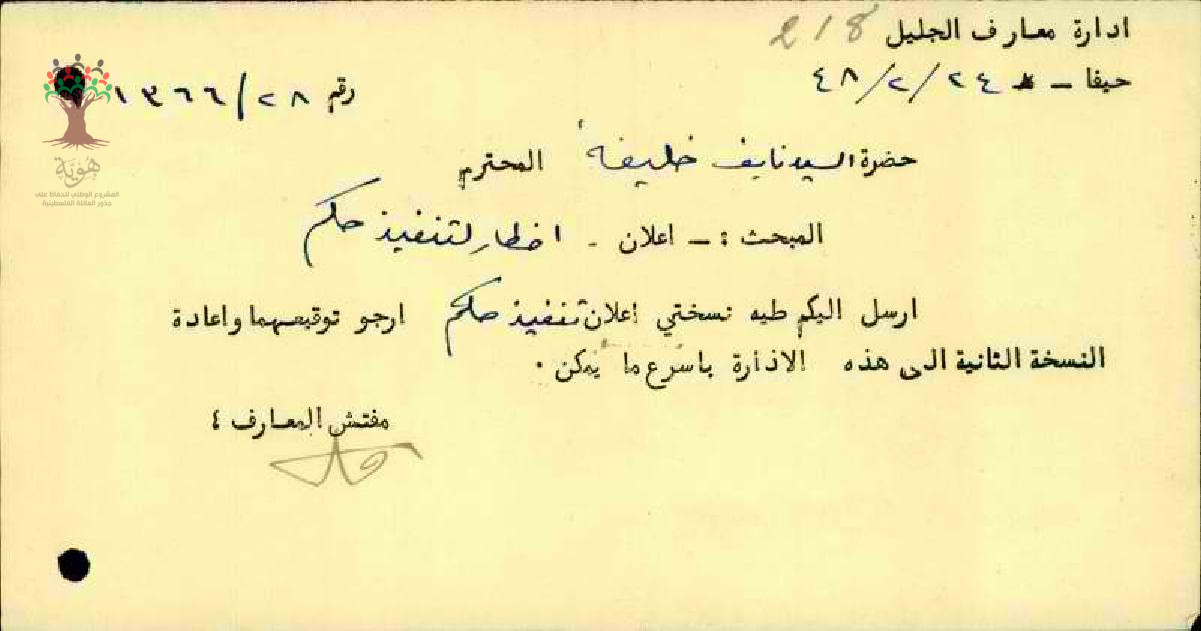 ادارة معارف الجليل 218
حيفا - ٤٨/٢/٢٤
رقم ١٣٦٦/٢٨
حضرة السيد نايف خليفه المحترم
المبحث :ـ اعلان - اخطار لتنفيذ حكم
ارسل اليكم طيه نسختي اعلان تنفيذ حكم ارجو توقيعهما واعادة
النسخة الثانية الى هذه الادارة باسرع ما يمكن .
مفتش المعارف ٤
هُوِيَّة
المشروع الوطني للحفاظ على
جذور العائلة الفلسطينية